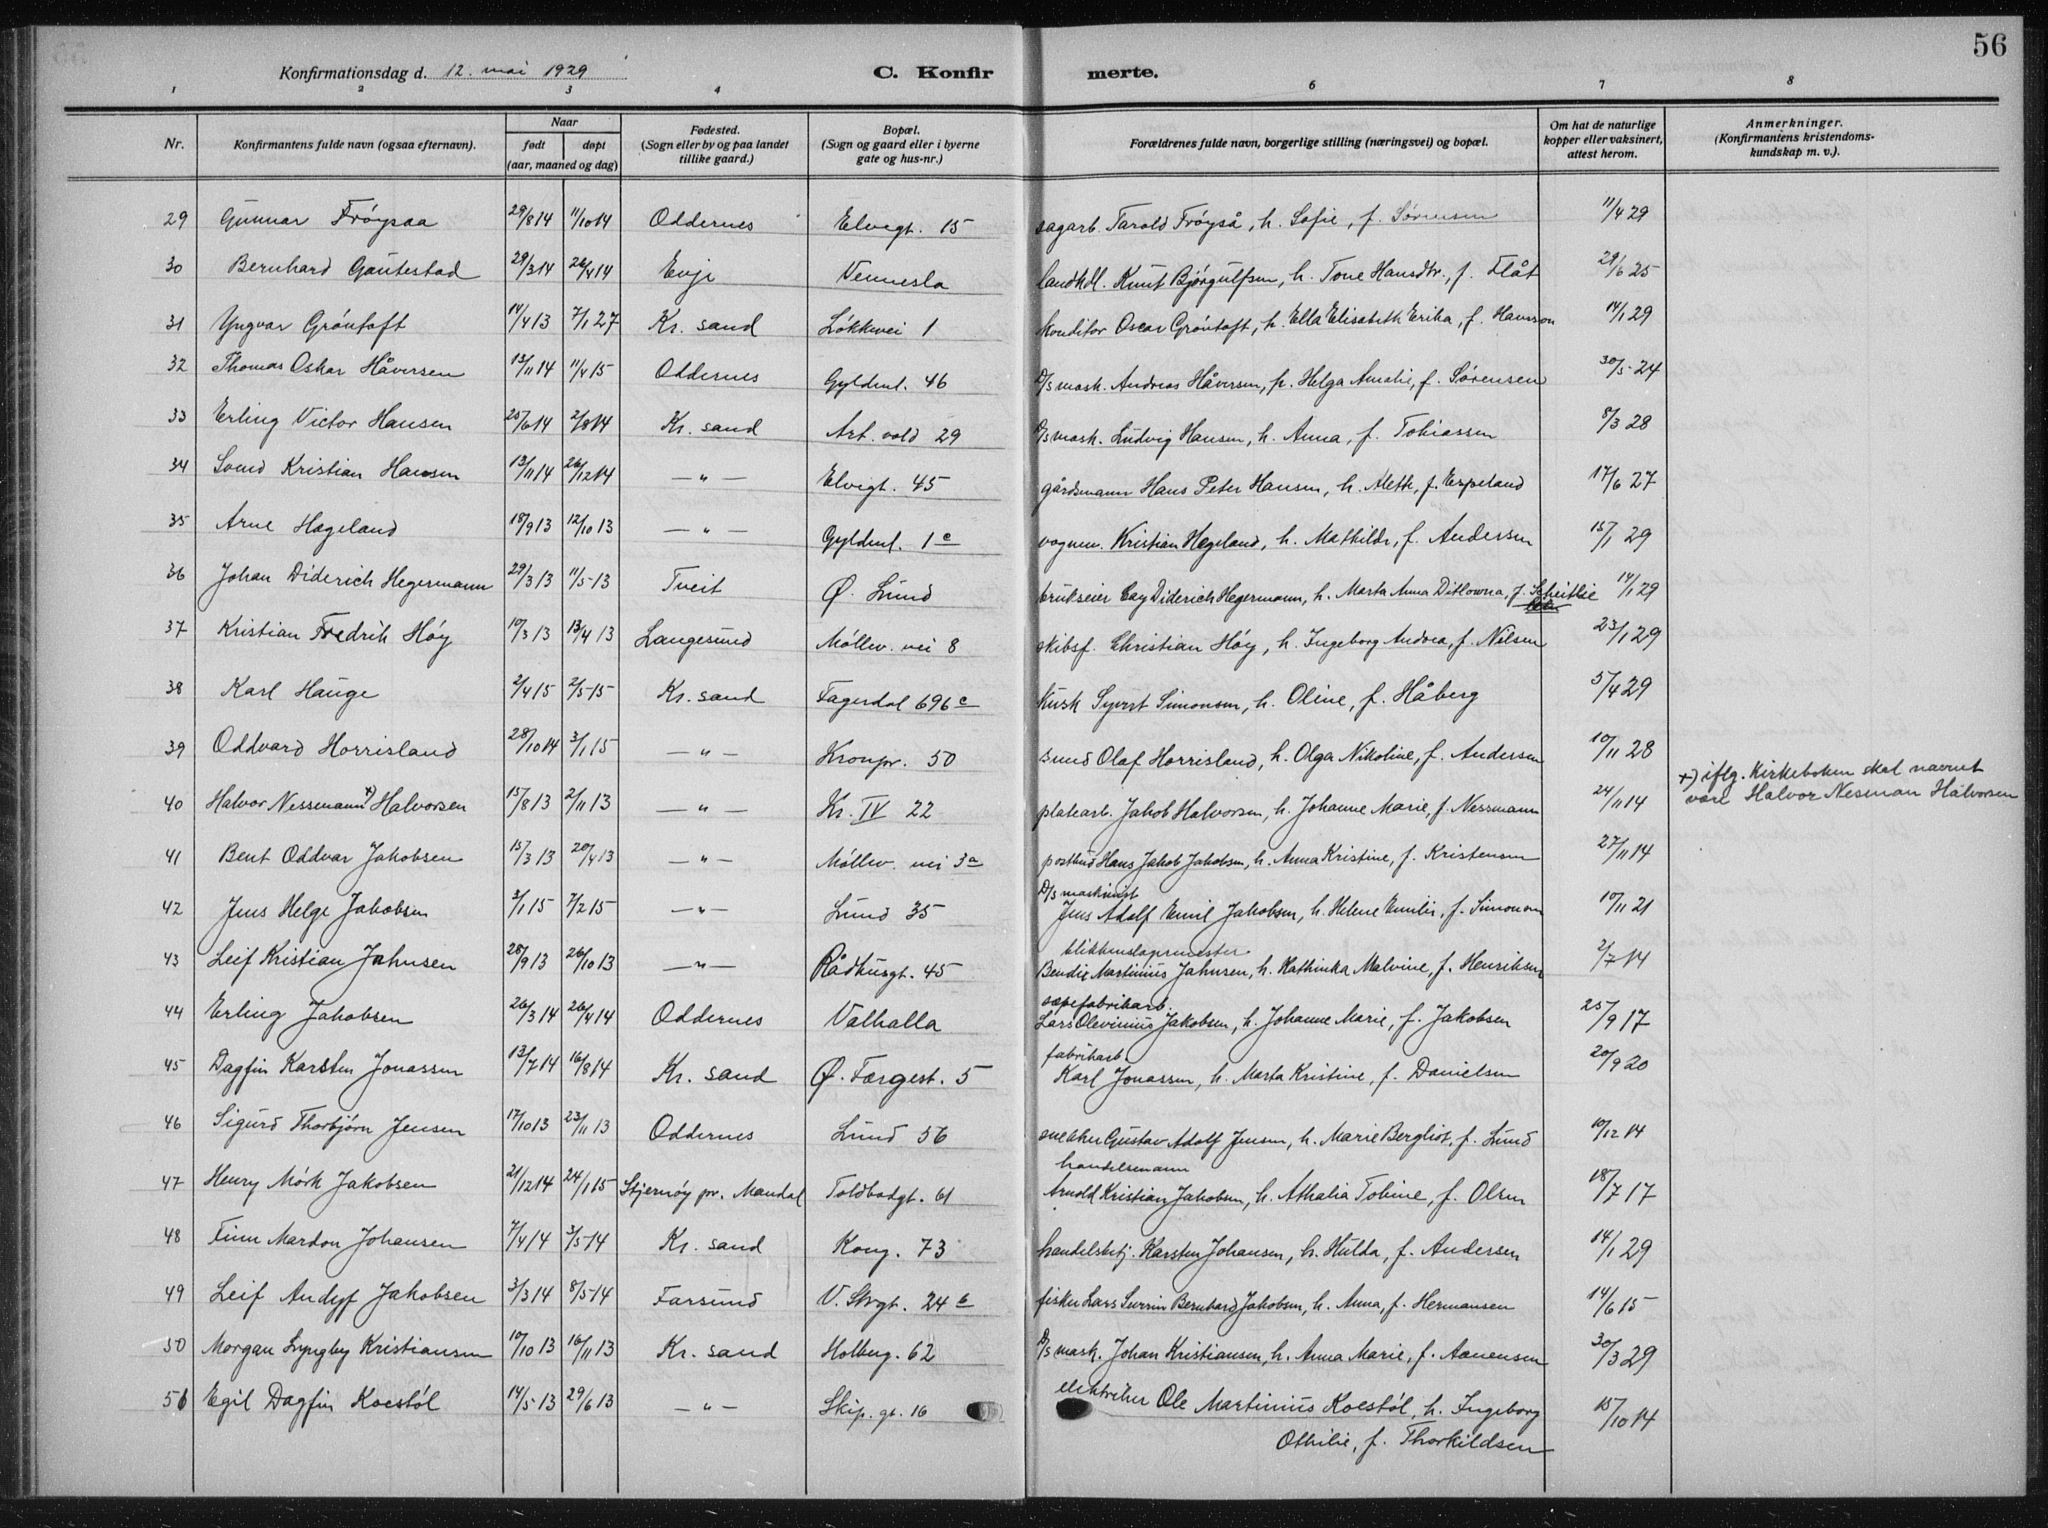 56
Konfirmationsdag d. 12. mai 1929 C. Konfirmerte.
1 2 3 4 6 7 8
Nr. Konfirmantens fulde navn (ogsaa efternavn). Naar født døpt (aar, maaned og dag) Fødested. (Sogn eller by og paa landet tillike gaard.) Bopæl. (Sogn og gaard eller i byerne gate og hus-nr.) Forældrenes fulde navn, borgerlige stilling (næringsvei) og bopæl. Om hat de naturlige kopper eller vaksinert, attest herom. Anmerkninger. (Konfirmantens kristendoms-kundskap m. v.).
29 Gunnar Frøysaa 29/8 14 11/10 14 Oddernes Elvegt. 15 sagarb. Tarald Frøyså, h. Sofie, f. Sørensen 11/4 29
30 Bernhard Gautestad 29/3 14 26/4 14 Evje Vennesla landhdl. Knut Bjørgulfsen, h. Tone Hansdtr., f. Flåt 29/6 25
31 Yngvar Grøntoft 14/4 13 7/1 27 Kr. sand Løkkevei 1 konditor Oscar Grøntoft, h. Ella Elisabeth Erika, f. Hansson 14/1 29
32 Thomas Oskar Håversen 13/11 14 11/4 15 Oddernes Gyldenl. 46 D/s mask. Andreas Håversen, h. Helga Amalie, f. Sørensen 30/5 24
33 Erling Victor Hansen 25/6 14 2/8 14 Kr. sand Art. vold 29 D/s mask. Ludvig Hansen, h. Anna, f. Tobiassen 8/3 28
34 Svend Kristian Hansen 13/11 14 26/12 14 — " — Elvegt. 45 gårdsmann Hans Peter Hansen, h. Aleth, f. Espeland 17/6 27
35 Arne Hægeland 18/9 13 12/10 13 — " — Gyldenl. 1 c vognm. Kristian Hægeland, h. Mathilde, f. Andersen 15/1 29
36 Johan Diderich Hegermann 29/3 13 11/5 13 Tveit Ø. Lund brukseier Cay Diderich Hegermann, h. Marta Anna Ditlowna, f. Scheitlie 14/1 29
37 Kristian Fredrik Høy 10/3 13 13/4 13 Langesund Møllev. vei 8 skibsf. Christian Høy, h. Ingeborg Andrea, f. Nilsen 23/1 29
38 Karl Hauge 2/4 15 2/5 15 Kr. sand Fagerdal 696 c Kusk Syvert Simonsen, h. Oline, f. Håberg 5/4 29
39 Oddvard Horrisland 28/10 14 3/1 15 — " — Kronpr. 50 smed Olaf Horrisland, h. Olga Nikoline, f. Andersen 10/11 28
40 Halvor Nessmann +) Halvorsen 15/8 13 2/11 13 — " — Kr. IV 22 platearb. Jakob Halvorsen, h. Johanne Marie, f. Nessmann 24/11 14 +) iflg. Kirkeboken skal navnet være Halvor Nesman Halvorsen
41 Bent Oddvar Jakobsen 15/3 13 20/4 13 — " — Møllev. vei 3 a postbud Hans Jakob Jakobsen, h. Anna Kristine, f. Kristensen 27/11 14
42 Jens Helge Jakobsen 3/1 15 7/2 15 — " — Lund 35 D/s maskinist Jens Adolf Emil Jakobsen, h. Helene Emilie, f. Simonsen 10/11 21
43 Leif Kristian Jahnsen 28/9 13 26/10 13 — " — Rådhusgt. 45 blikkenslagermester Bendix Martinius Jahnsen, h. Kathinka Malvine, f. Henriksen 2/7 14
44 Erling Jakobsen 26/3 14 26/4 14 Oddernes Valhalla sæpefabrikarb. Lars Olevinius Jakobsen, h. Johanne Marie, f. Jakobsen 25/9 17
45 Dagfin Karsten Jonassen 13/7 14 16/8 14 Kr. sand Ø. Færgest. 5 fabrikarb. Karl Jonassen, h. Marta Kristine, f. Danielsen 20/9 20
46 Sigurd Thorbjørn Jensen 17/10 13 23/11 13 Oddernes Lund 56 snekker Gustav Adolf Jensen, h. Marie Bergliot, f. Lund 10/12 14
47 Henry Mørk Jakobsen 21/12 14 24/1 15 Skjernøy pr. Mandal Toldbodgt. 61 handelsmann Arnold Kristian Jakobsen, h. Athalia Tobine, f. Olsen 18/7 17
48 Finn Mardon Johansen 7/4 14 3/5 14 Kr. sand Kong. 73 handelsbetj. Karsten Johansen, h. Hulda, f. Andersen 14/1 29
49 Leif Jakobsen 3/3 14 8/5 14 Farsund V. Strgt. 24 b fisker Lars Severin Bernhard Jakobsen, h. Anna, f. Hermansen 14/6 15
50 Morgan Lyngby Kristiansen 10/10 13 16/11 13 Kr. sand Holberg. 62 D/s mask. Johan Kristiansen, h. Anna Marie, f. Aanensen 30/3 29
51 Egil Dagfin Koestøl 14/5 13 29/6 13 — " — Skip. gt. 16 elektriker Ole Martinius Koestøl, h. Ingeborg 15/10 14
Othilie, f. Thorkildsen